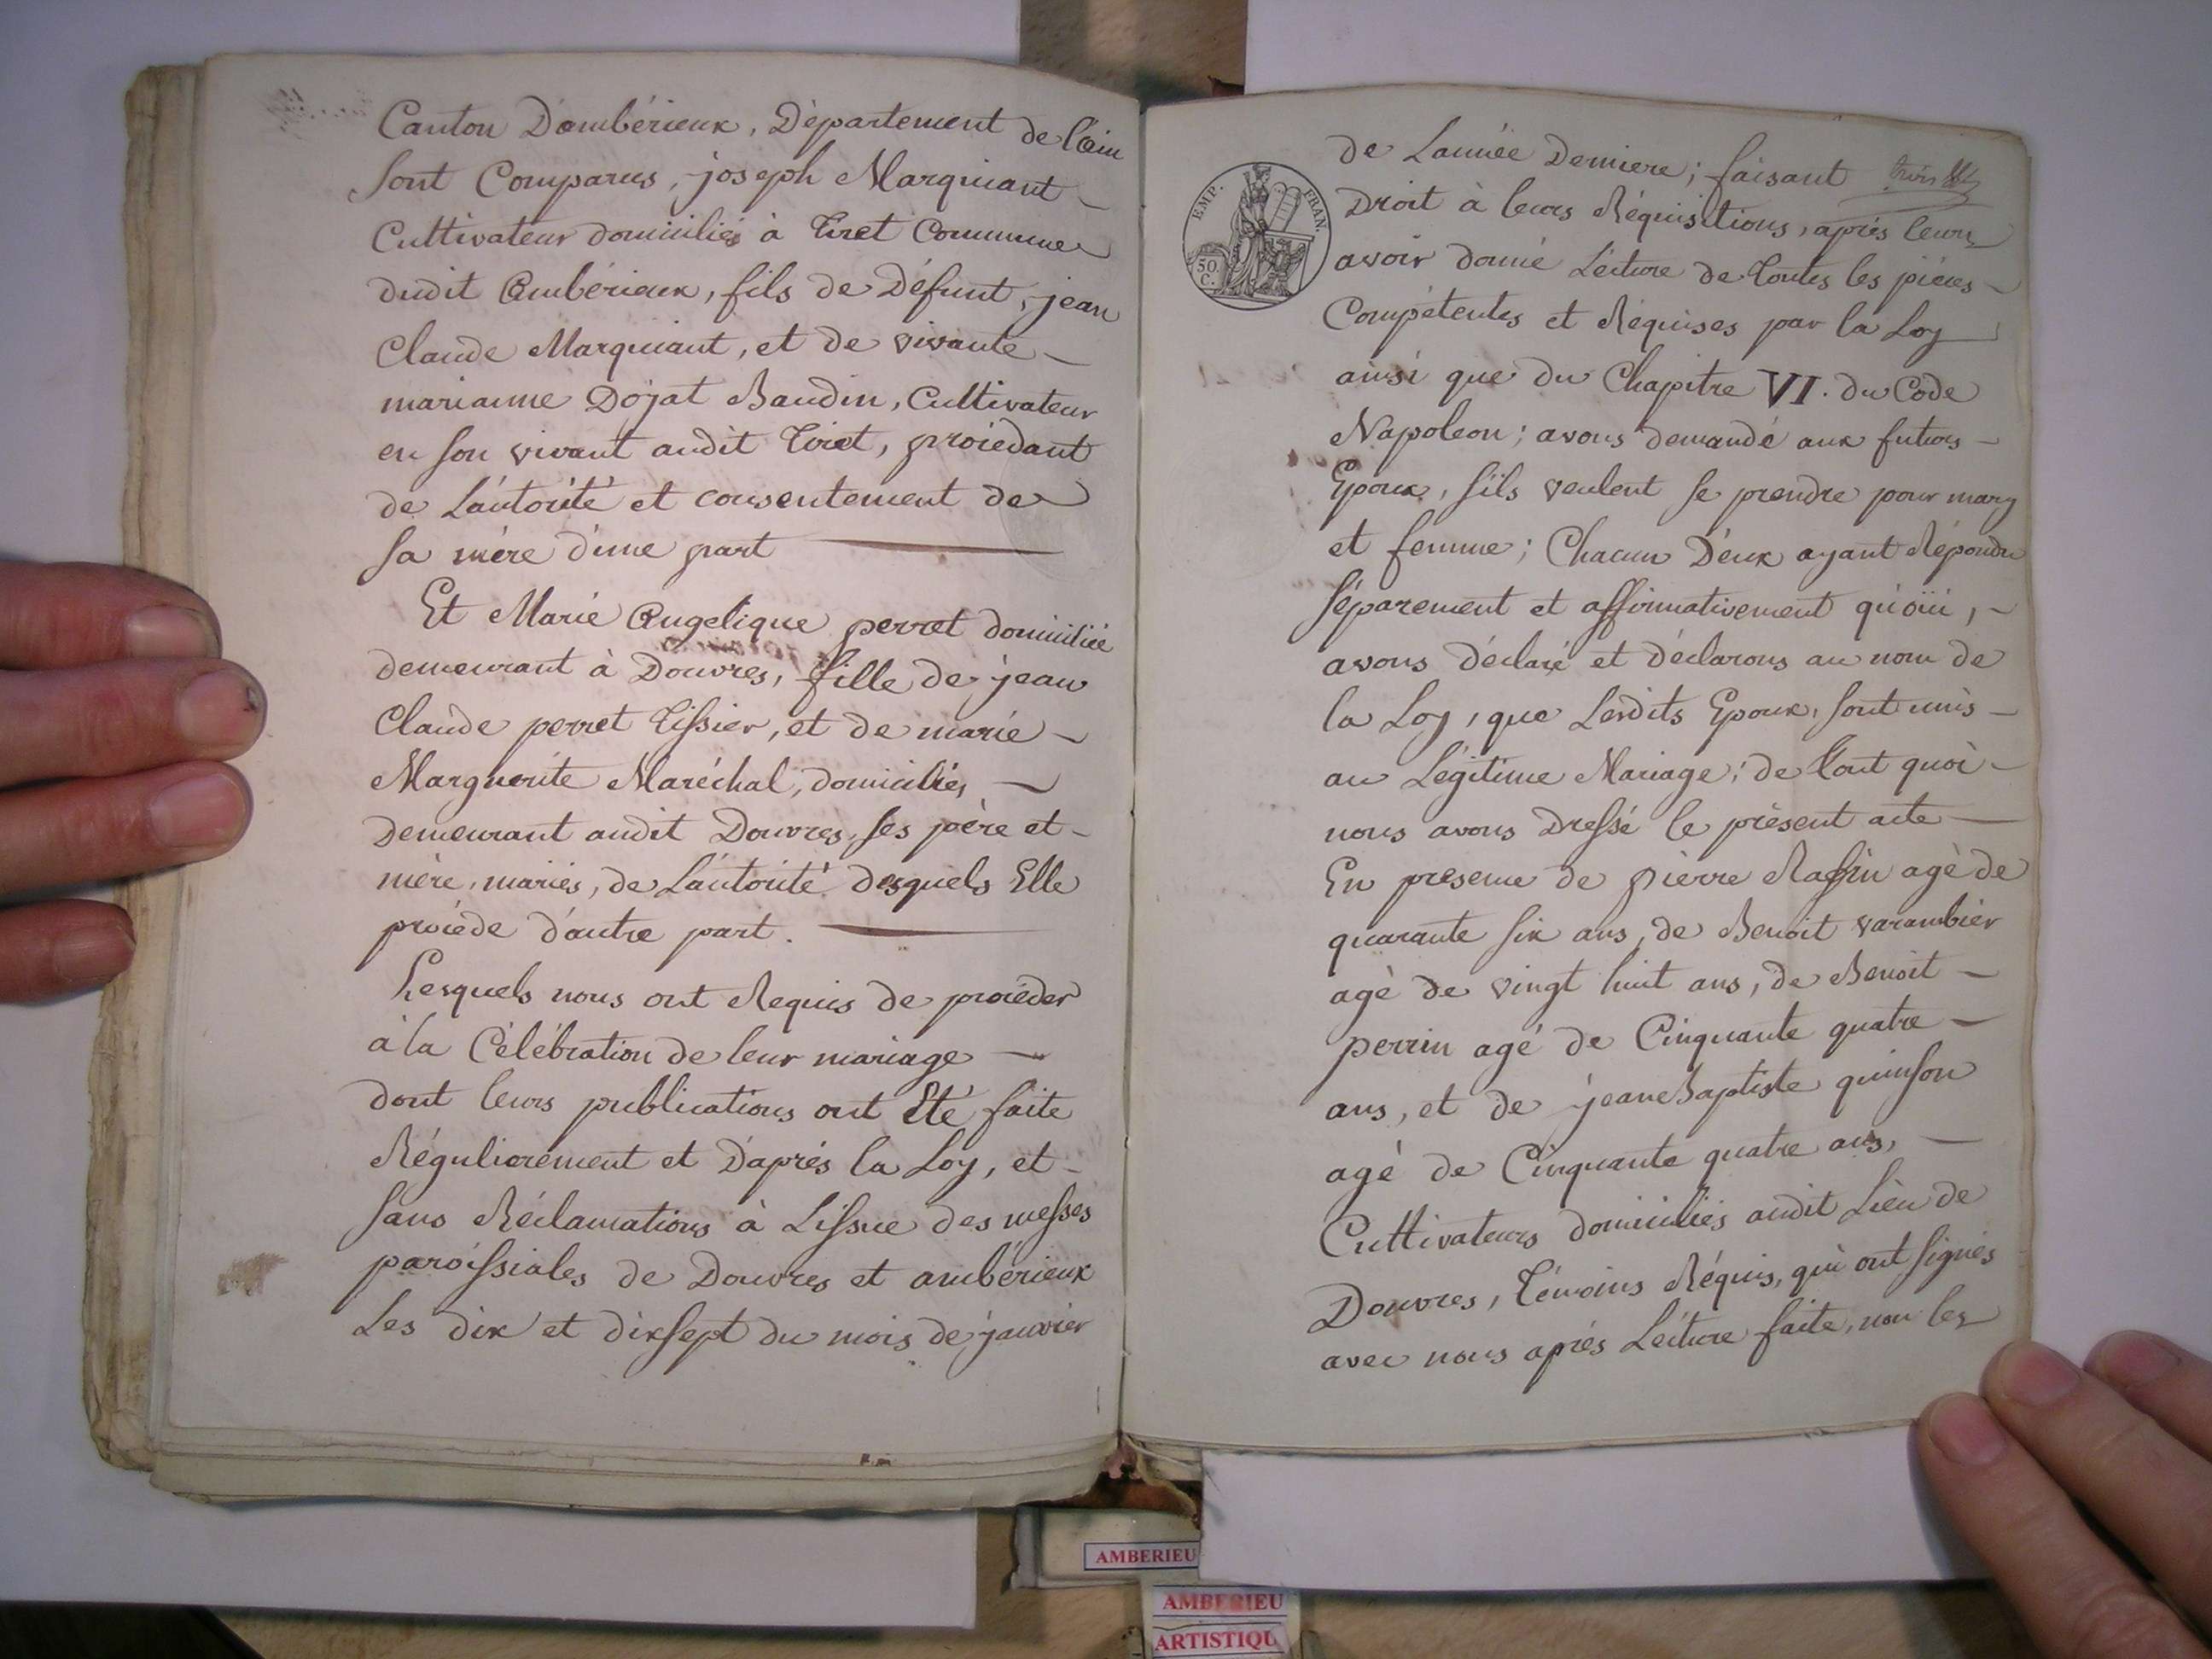 Canton D'ambérieux, Département de l'ain
sont Comparus, joseph Marquiant
Cultivateur domiciliés à Tiret Commune
dudit Ambérieux, fils de Défunt, jean
Claude Marquiant, et de vivante
marianne Dojat Baudin, Cultivateur
en son vivant audit Tiret, procédant
de L'autorité et consentement de
sa mère d'une part
Et Marie Angelique perret domiciliée
demeurant à Douvres, fille de jean
Claude perret Tissier, et de marie
Marguerite Maréchal, domiciliés
demeurant audit Douvres, ses père et
mère, mariés, de L'autorité desquels Elle
procède d'autre part.
Lesquels nous ont Requis de procéder
à la Célébration de leur mariage
dont leurs publications ont Eté faite
Régulierement et D'après la Loy, et
sans Réclamations à L'issue des messes
paroissiales de Douvres et ambérieux
Les dix et dixsept du mois de janvier
de L'année Derniere; faisant
Droit à leurs Réquisitions, après leurs
avoir donné Lécture de toutes les pièces
Compétentes et Réquises par la Loy
ainsi que du Chapitre VI. du Code
Napoleon; avons demandé aux futurs
Epoux, s'ils veulent se prendre pour mary
et femme; Chacun D'eux ayant Répondu
séparement et affirmativement qu'oüi,
avons déclaré et déclarons au nom de
la Loy, que Lesdits Epoux, sont unis
au Légitime Mariage; de tout quoi
nous avons Dressé le présent acte
En presence de pierre Rassin agè de
quarante six ans, de Benoit varambier
agè de vingt huit ans, de Benoit
perrin agé de Cinquante quatre
ans, et de jean Baptiste quinson
agè de Cinquante quatre ans,
Cultivateurs domiciliés audit Lieu de
Douvres, Témoins Réquis, qui ont signés
avec nous après Lécture faite, non les
EMP. FRAN.
50.
C.
AMBERIEU
AMBERIEU
ARTISTIQU